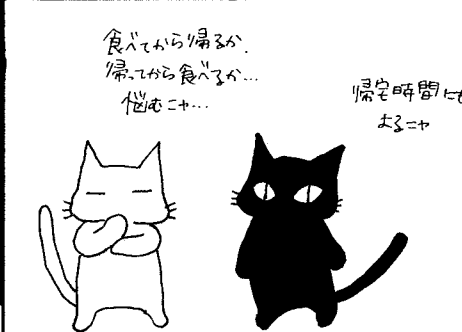 食べてから帰るか.
帰ってから食べるか…
悩むニャ…
帰宅時間にも
よるニャ